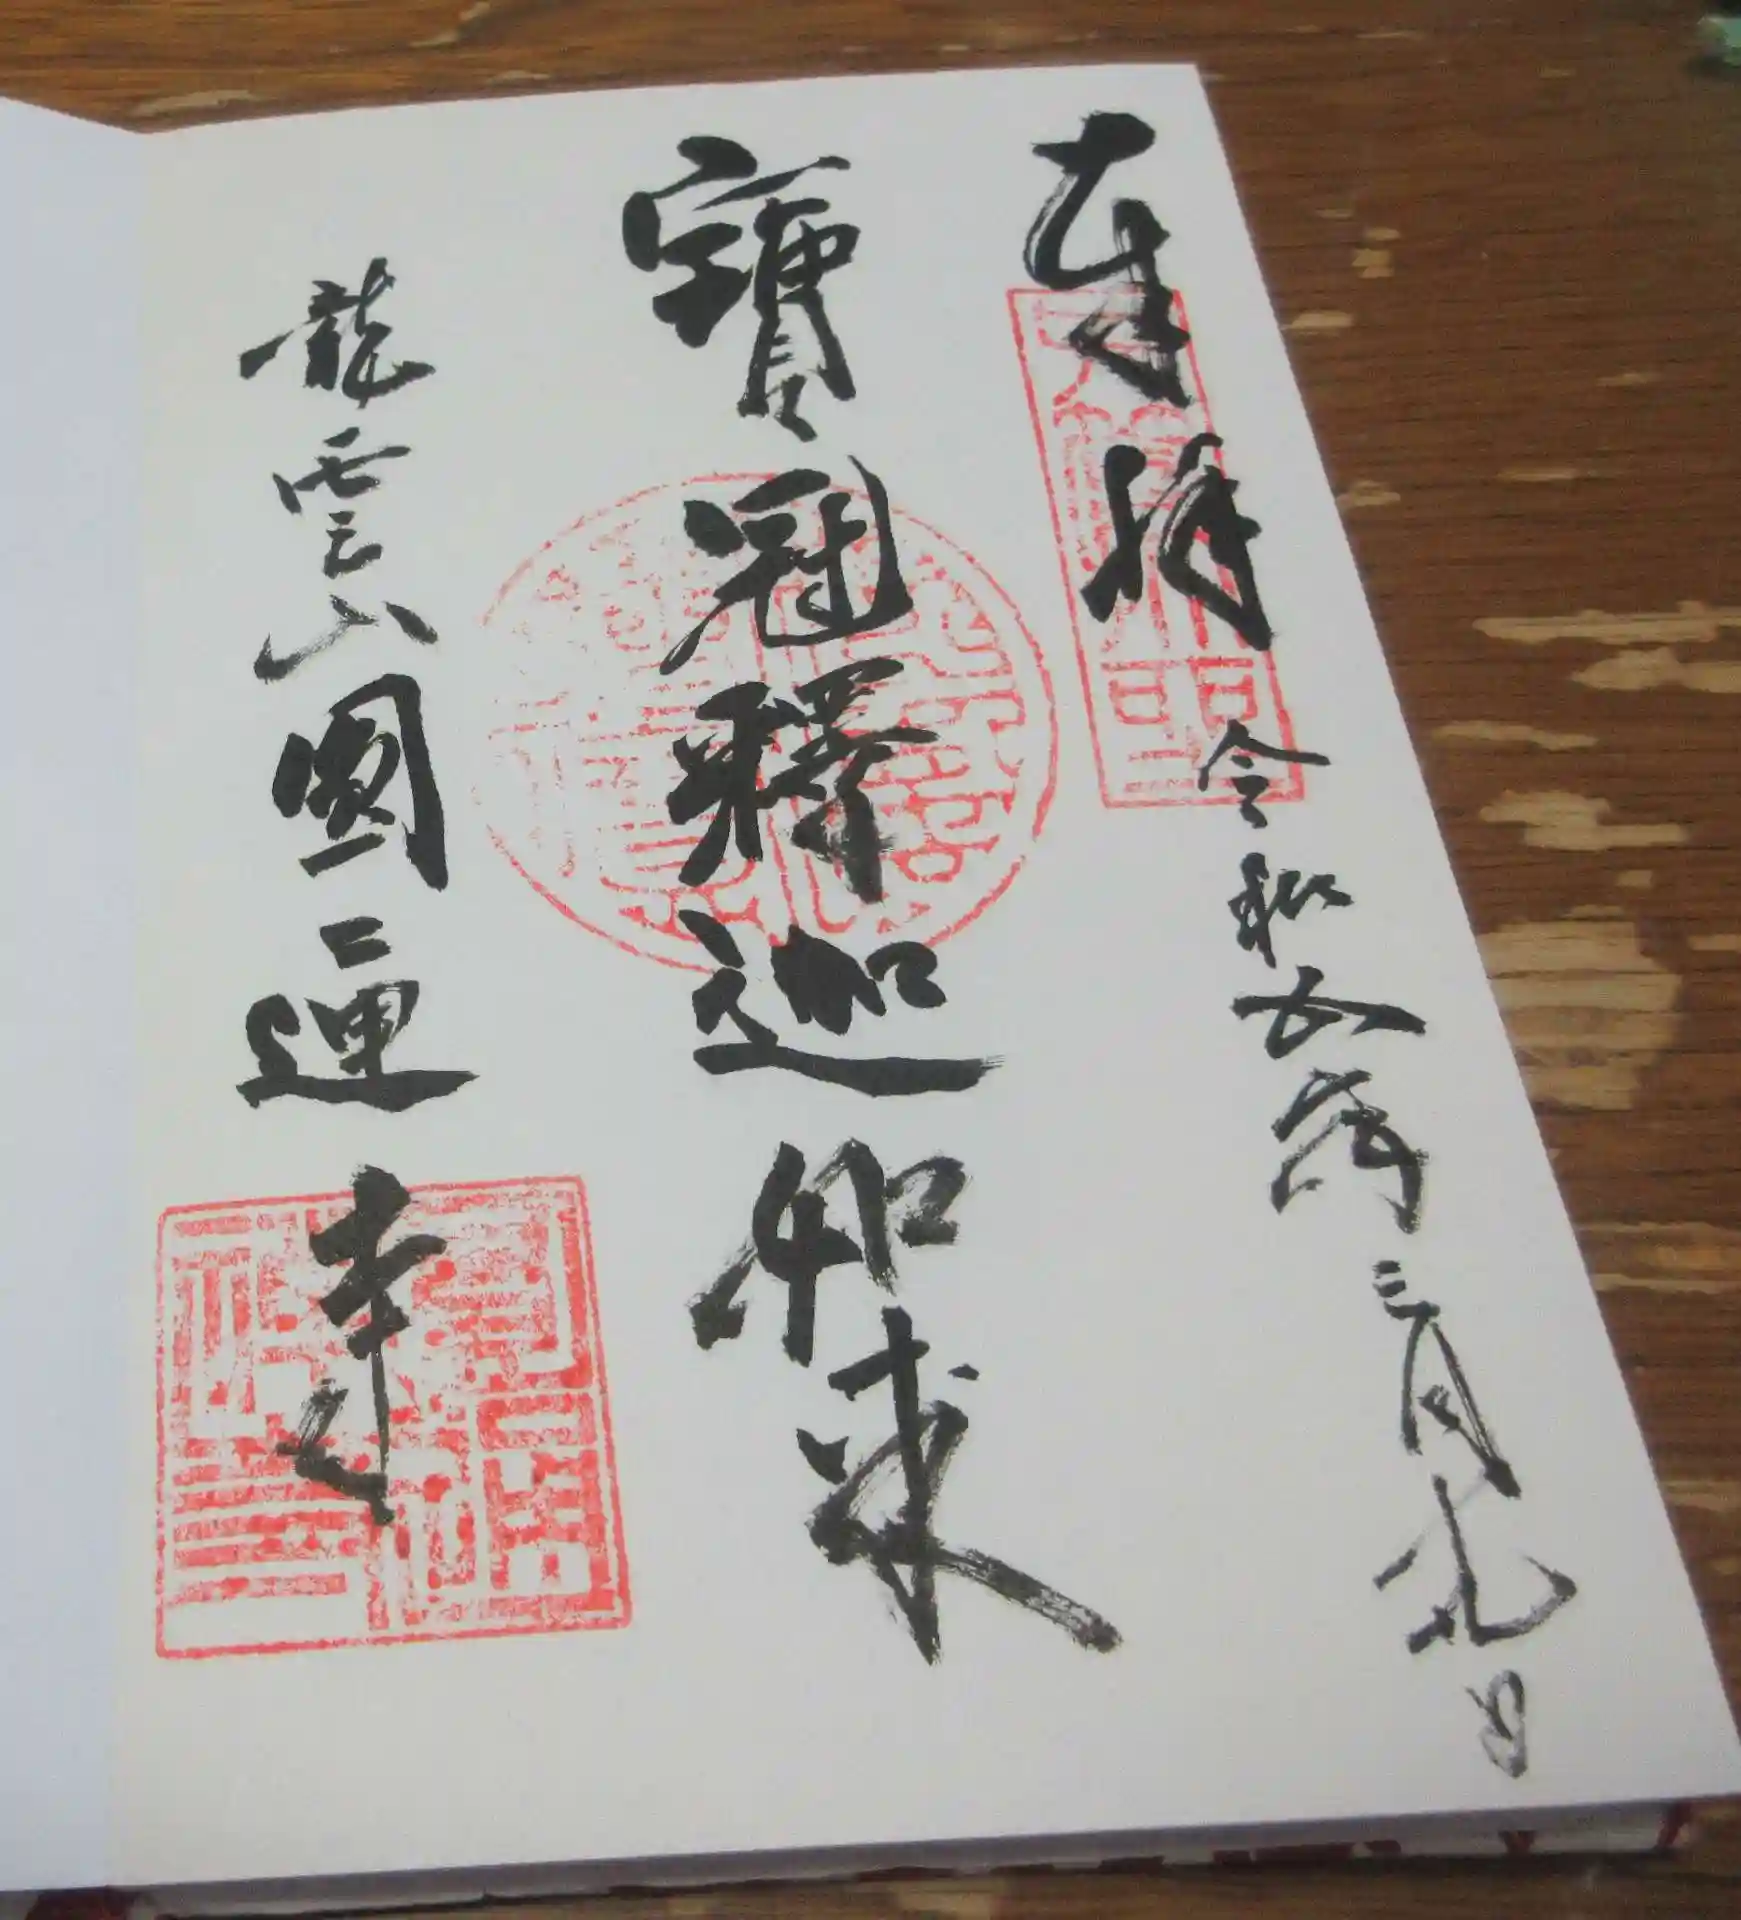 奉拝 令和五歳三月十九日
寶冠釋迦如来
龍雲山圓通寺